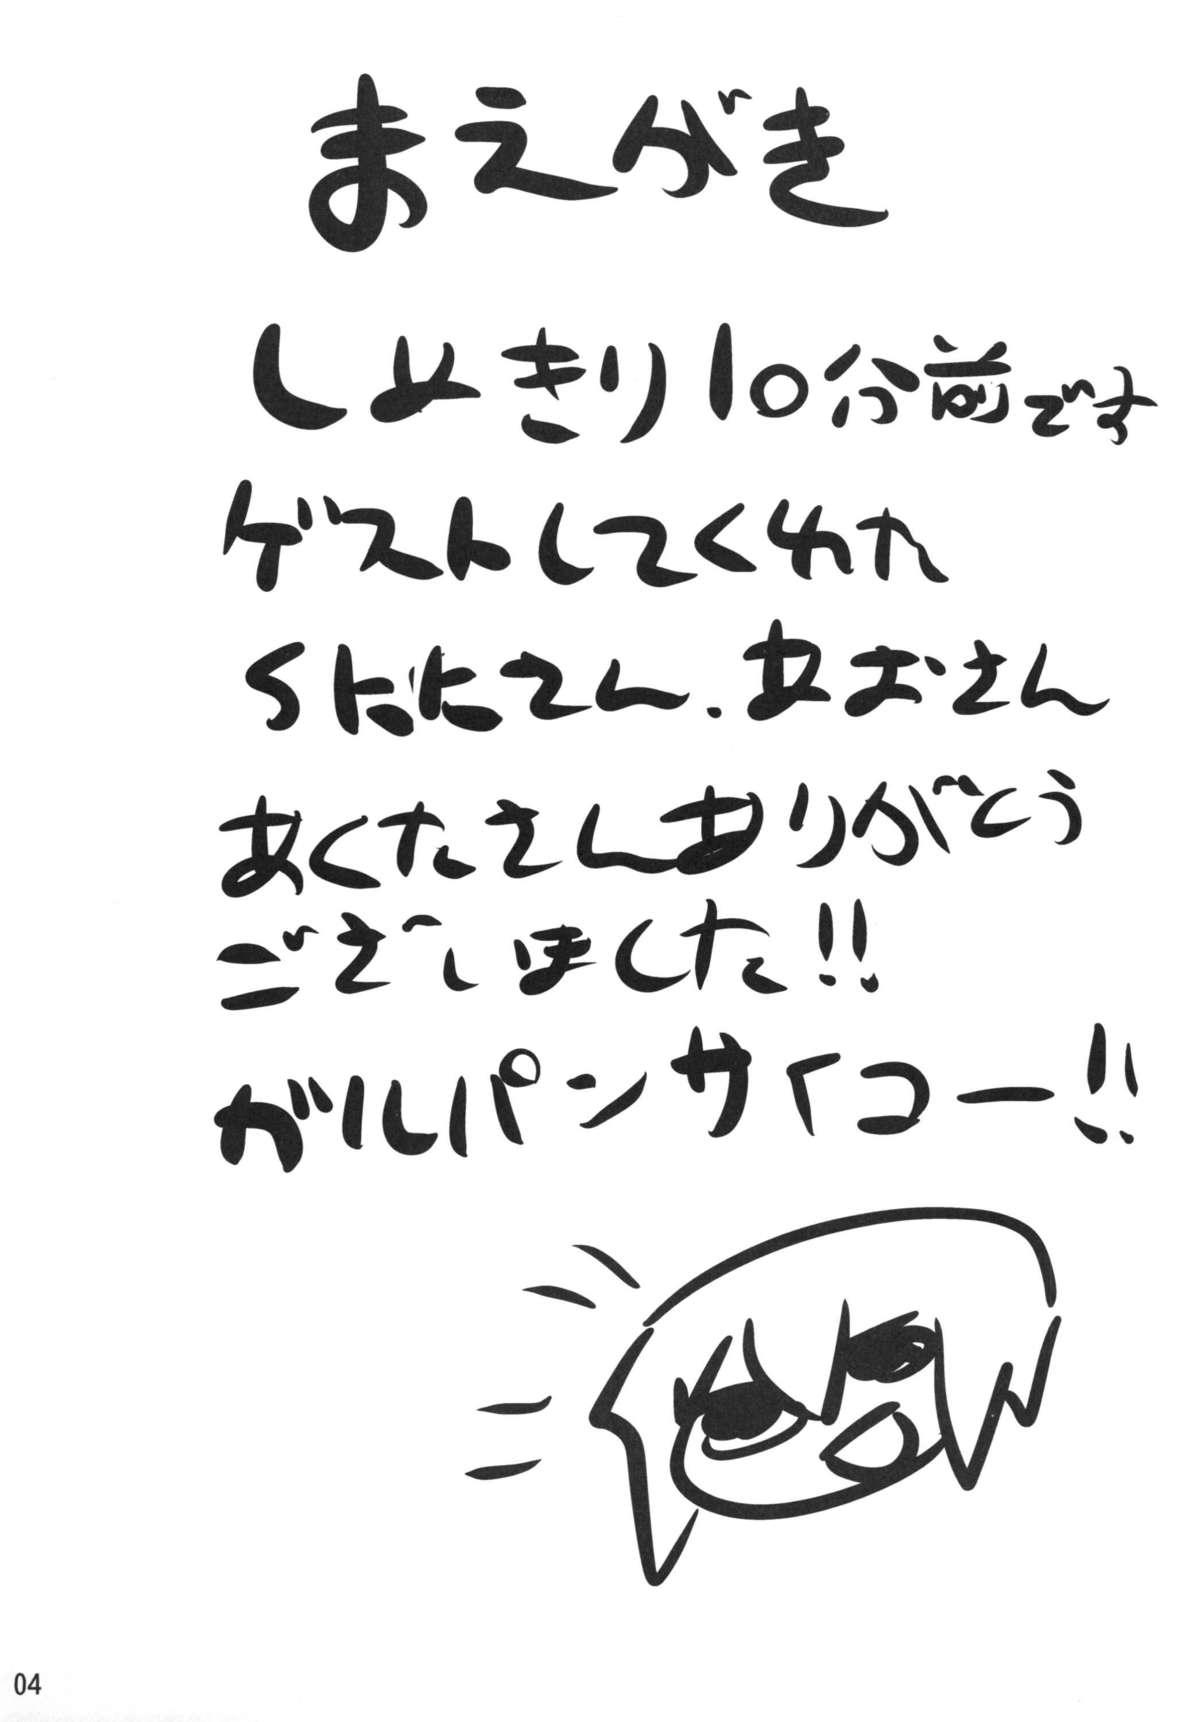 まえがき
しめきり10分前です
ゲストしてくれた
さん.あおさん
あくたさんありがとう
ございました!!
ガルパンサイコー!!
04